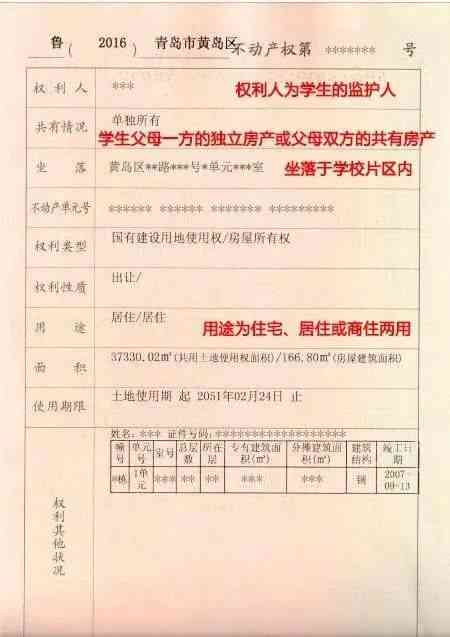 鲁（ 2016 ）青岛市黄岛区不动产权第 ******* 号
权利人 *** 权利人为学生的监护人
共有情况 单独所有
学生父母一方的独立房产或父母双方的共有房产
坐落 黄岛区**路***号*单元***室 坐落于学校片区内
不动产单元号 ****** ****** ******* *********
权利类型 国有建设用地使用权/房屋所有权
权利性质 出让/
用途 居住/居住 用途为住宅、居住或商住两用
面积 37330.02㎡(共用土地使用权面积)/166.80㎡(房屋建筑面积)
使用期限 土地使用期 起 2051年02月24日 止
姓名：*** 证件号码：******************
幢号 单元号 室号 总层数 所在层 专有建筑面积(㎡) 分摊建筑面积(㎡) 建筑结构 竣工日期
*栋 1单元 *** ** ** *** *** 钢 2007-09-13
权利其他状况